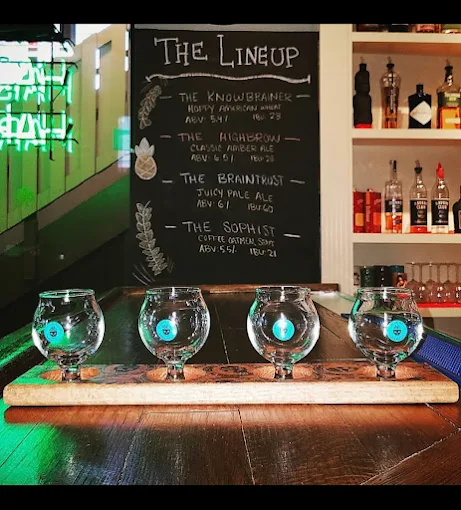 THE LINEUP
THE KNOWBRAINER
HOPPY AMERICAN WHEAT
THE HIGHBROW
CLASSIC AMBER ALE
ABV: 6.5%
THE BRAINTRUST
JUICY PALE ALE
ABV: 6% IBU: 60
THE SOPHIST
COFFEE OATMEAL STOUT
ABV: 5.5% IBU: 21